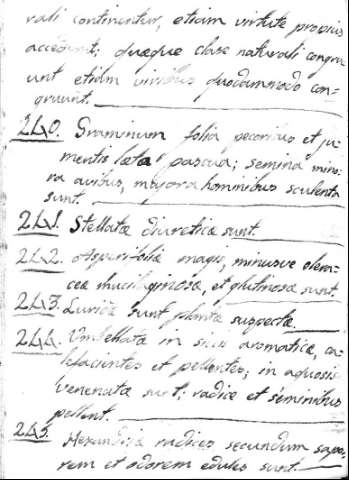 rali continentur, etiam virtute propius
accedunt; quaeque clase naturali congru
unt etiam viribus quodammodo con=
gruunt.
240. Graminum folia pecoribus et ju
mentis læta pascua; semina mino
ra avibus, majora hominibus esculenta
sunt.
241. Stellatæ diureticæ sunt.
242. Asperifoliæ magis, minusve olera
ceæ mucilaginosæ, et glutinosæ sunt.
243. Luridæ sunt plantæ suspectæ.
244. Umbellatæ in siccis aromaticæ, ca
lefacientes et pellentes; in aquosis
venenatæ sunt; radice et seminibus
pellunt.
245. Hexandriæ radices secundum sapo
rem et odorem edules sunt.